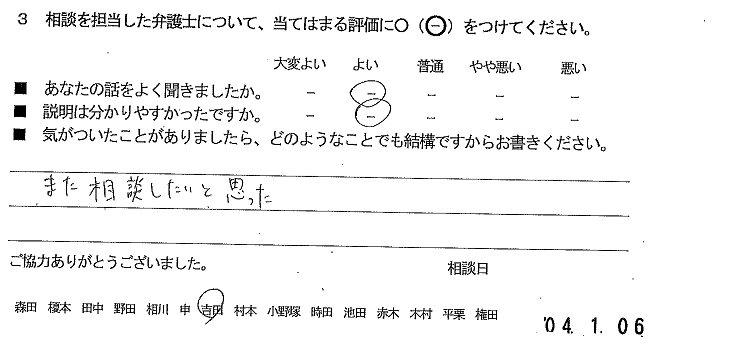 3 相談を担当した弁護士について、当てはまる評価に○（⊖）をつけてください。
大変よい よい 普通 やや悪い 悪い
■ あなたの話をよく聞きましたか。 － － － － －
■ 説明は分かりやすかったですか。 － － － － －
■ 気がついたことがありましたら、どのようなことでも結構ですからお書きください。
また相談したいと思った
ご協力ありがとうございました。 相談日
森田 榎本 田中 野田 相川 申 吉田 村本 小野塚 時田 池田 赤木 木村 平栗 権田
'04. 1. 06